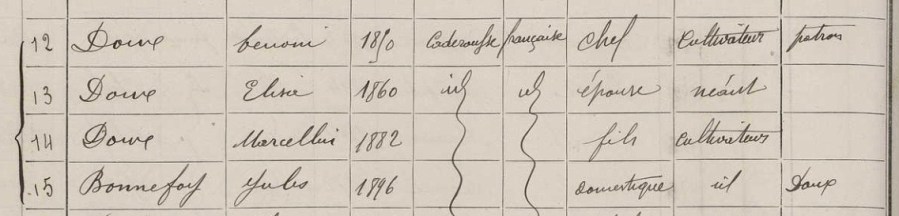 12 Doux benoni 1850 Caderousse française chef Cultivateur patron
13 Doux Elisie 1860 id id épouse néant
14 Doux Marcellin 1882 fils cultivateurs
15 Bonnefoy Jules 1896 domestique id Doux